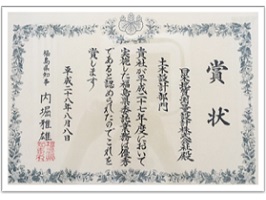 賞状
土木設計部門
貴社が平成二十七年度において
実施した福島県委託業務は優秀
であると認められたのでこれを
賞します
平成二十八年八月八日
福島県知事 内堀雅雄